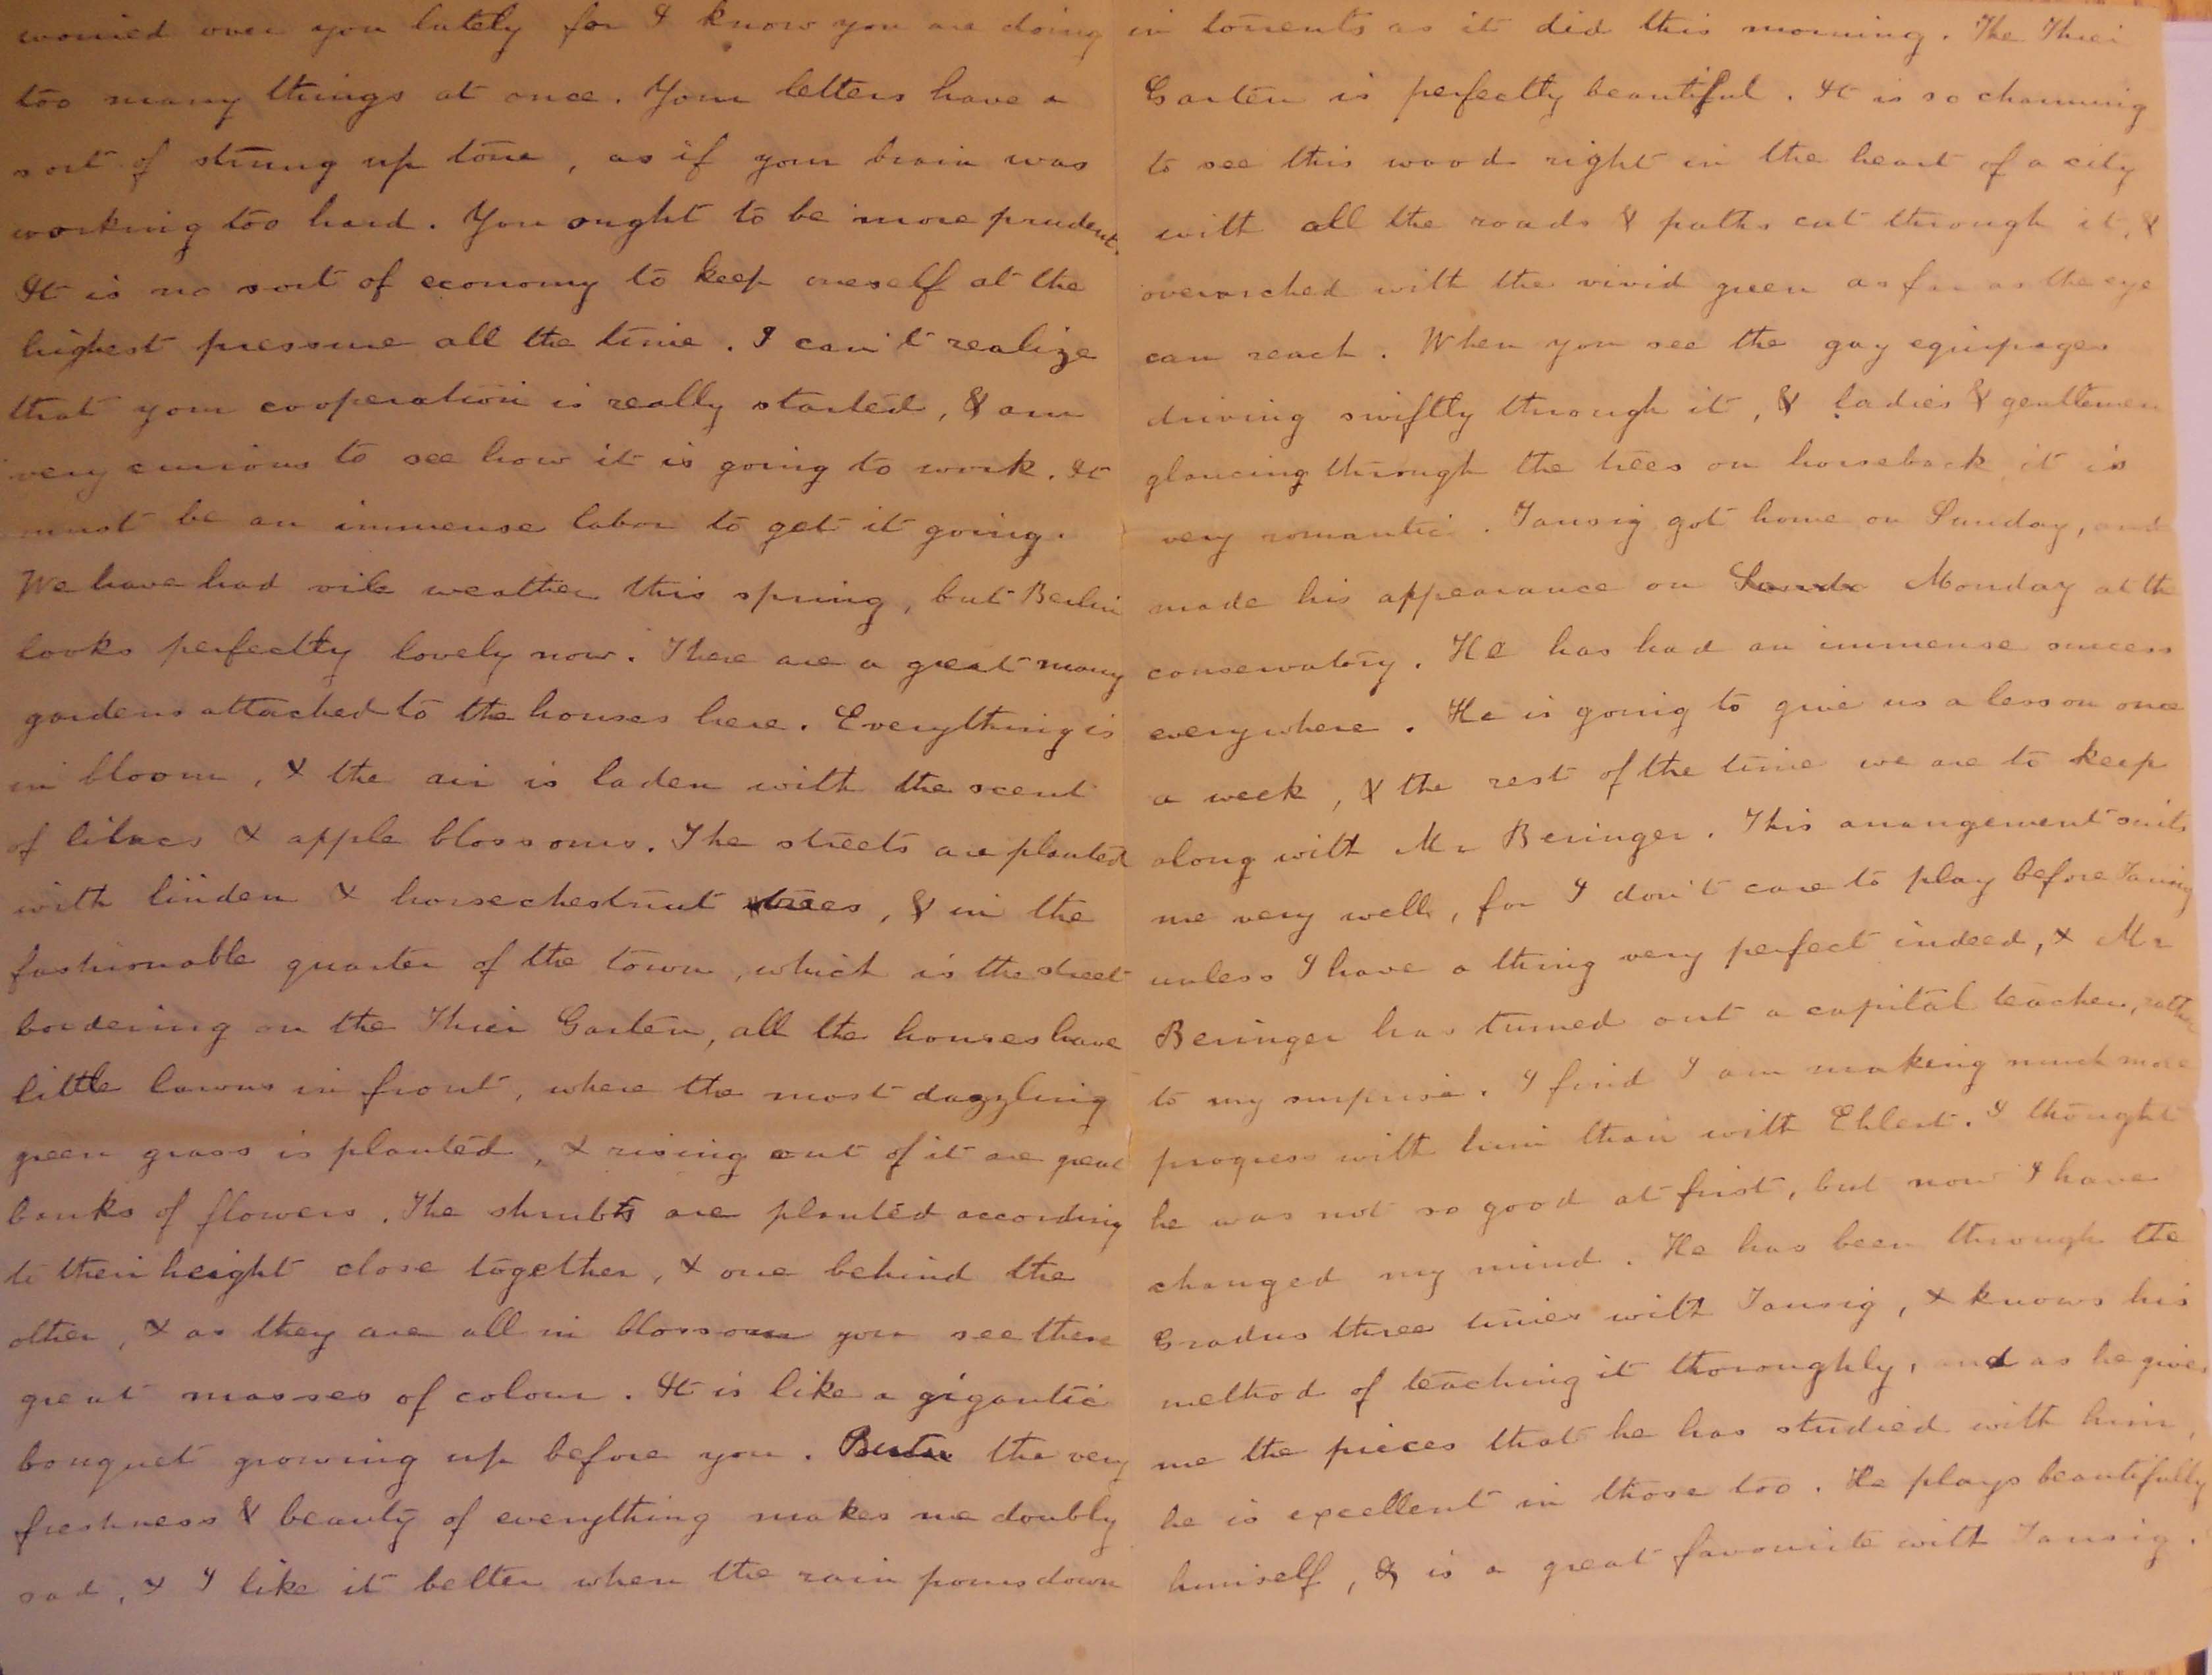 worried over you lately for I know you are doing
too many things at once. Your letters have a
sort of strung up tone, as if your brain was
working too hard. You ought to be more prudent.
It is no sort of economy to keep oneself at the
highest pressure all the time. I can't realize
that your cooperation is really started, & am
very curious to see how it is going to work. It
must be an immense labor to get it going.
We have had vile weather this spring, but Berlin
looks perfectly lovely now. There are a great many
gardens attached to the houses here. Everything is
in bloom, & the air is laden with the scent
of lilacs & apple blossoms. The streets are planted
with linden & horsechestnut trees, & in the
fashionable quarter of the town, which is the street
bordering on the Thier Garten, all the houses have
little lawns in front, where the most dazzling
green grass is planted, & rising out of it are great
banks of flowers. The shrubs are planted according
to their height close together, & one behind the
other, & as they are all in blossom you see these
great masses of colour. It is like a gigantic
bouquet growing up before you. But the very
freshness & beauty of everything makes me doubly
sad, & I like it better when the rain pours down
in torrents as it did this morning. The Thier
Garten is perfectly beautiful. It is so charming
to see this wood right in the heart of a city
with all the roads & paths cut through it, &
overarched with the vivid green as far as the eye
can reach. When you see the gay equipages
driving swiftly through it, & ladies & gentlemen
glancing through the trees on horseback it is
very romantic. Tausig got home on Sunday, and
made his appearance on Monday at the
conservatory. He has had an immense success
everywhere. He is going to give us a lesson once
a week, & the rest of the time we are to keep
along with Mr Beringer. This arrangement suits
me very well, for I don't care to play before Tausig
unless I have a thing very perfect indeed, & Mr
Beringer has turned out a capital teacher, rather
to my surprise. I find I am making much more
progress with him than with Ehlert. I thought
he was not so good at first, but now I have
changed my mind. He has been through the
Gradus three times with Tausig, & knows his
method of teaching it thoroughly, and as he gives
me the pieces that he has studied with him,
he is excellent in those too. He plays beautifully
himself, & is a great favourite with Tausig.